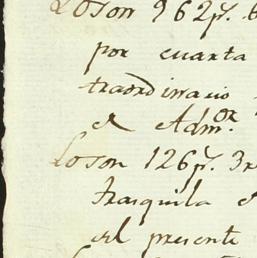 Loson 962p.s 6
por cuarta
traordinario
el Adm.or
Loson 126p.s 3r
trasquila e
del presente